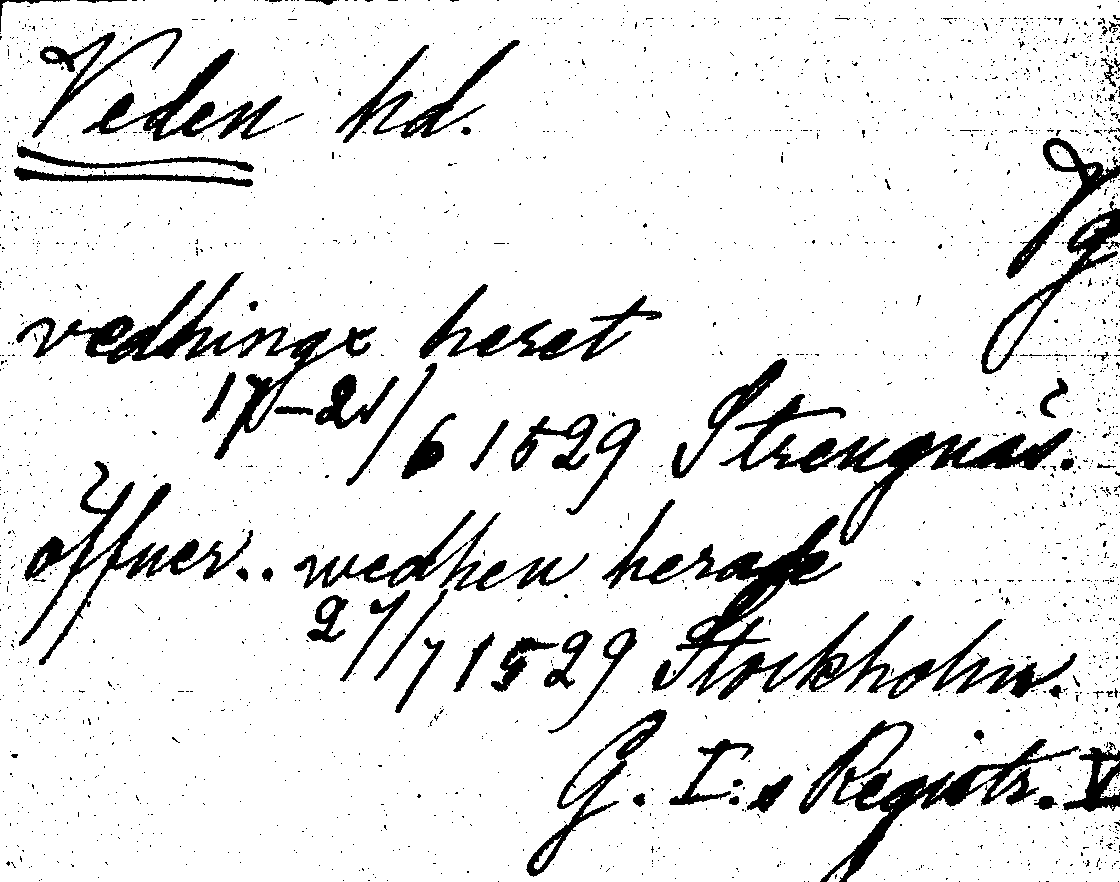 Veden hd.
Vg
vedhingx heret
17-21/6 1529 Strengnäs.
öffuer.. wedhen herade
27/7 1529 Stockholm.
G. I:s Registr. V